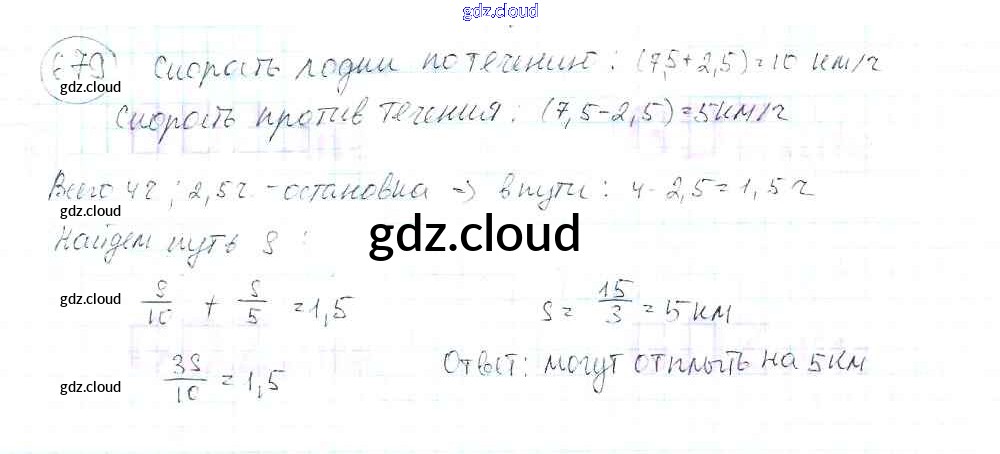 gdz.cloud
679 Скорость лодки по течению: (7,5+2,5)=10 км/ч
gdz.cloud
Скорость против течения: (7,5-2,5)=5км/ч
Всего 4ч; 2,5ч - остановка => в пути: 4-2,5=1,5ч
gdz.cloud
Найдем путь S:
gdz.cloud
gdz.cloud S/10 + S/5 = 1,5 S = 15/3 = 5 км
gdz.cloud 3S/10 = 1,5 Ответ: могут отплыть на 5км